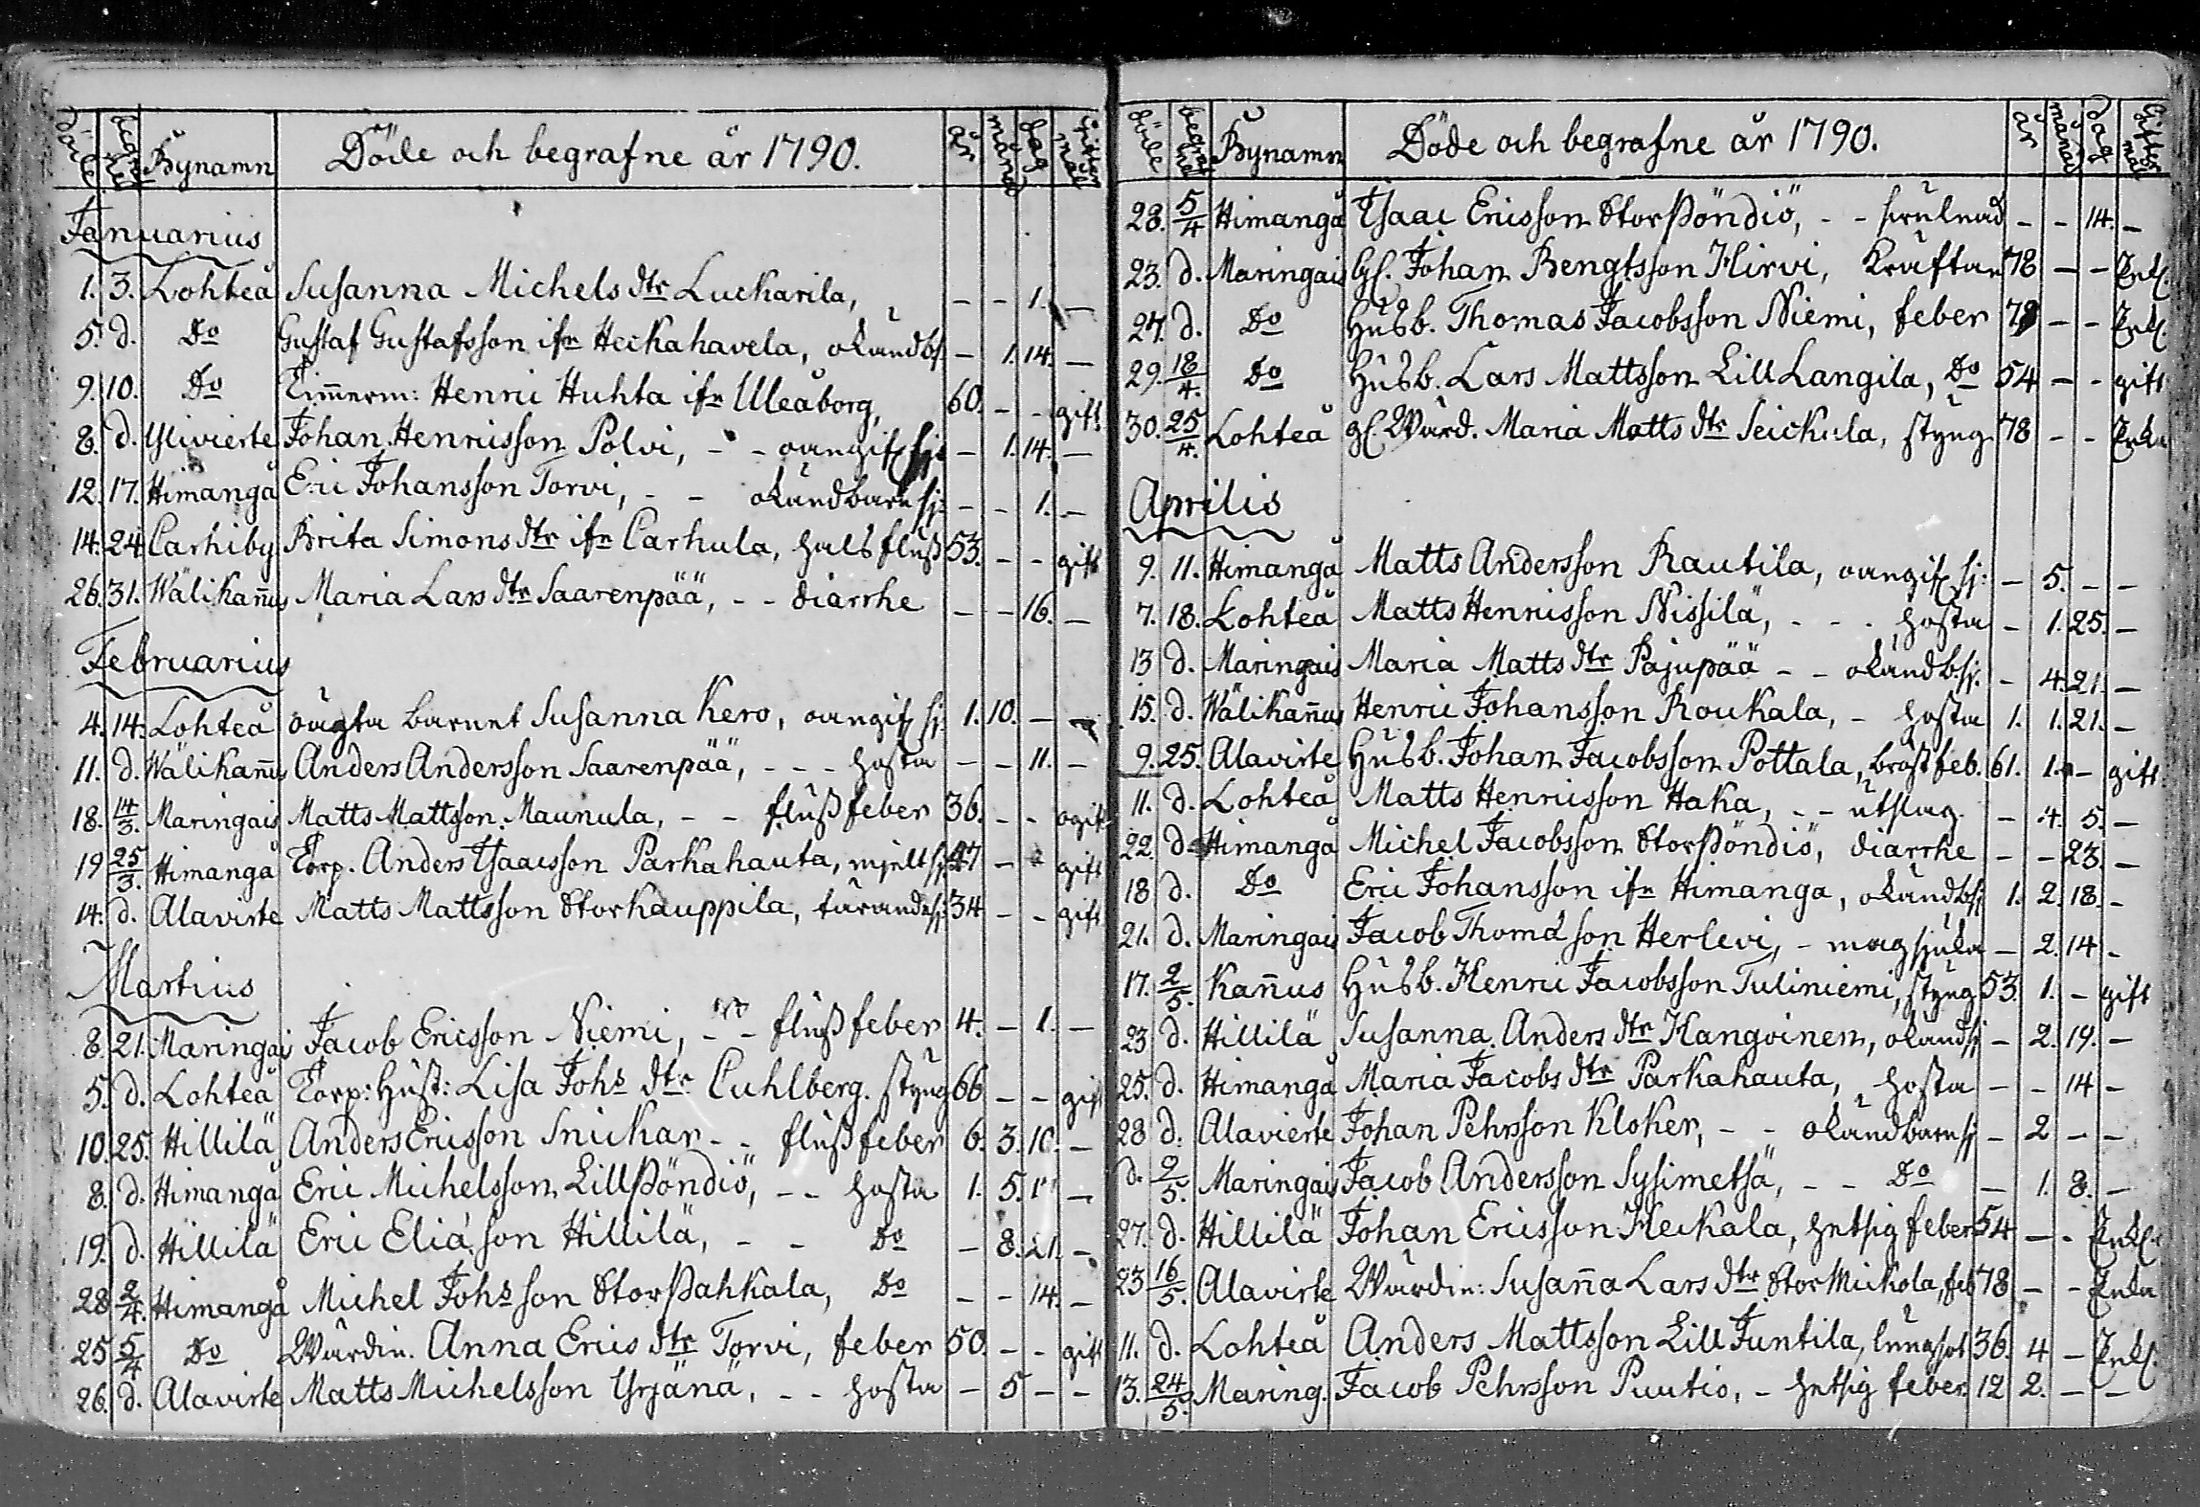 döde begrafne Bynamn Döde och begrafne år 1790. år månad dag Giftermål
Januarius
1. 3. Lohteå Susanna Michels dtr Luckarila, - - 1. -
5. d. Do Gustaf Gustafsson ifn Heckahavela, okändbsj - 1. 14. -
9. 10. Do Timmerm: Henric Huhta ifn Uleåborg, 60. - - gift
8. d. Ylivierte Johan Henricsson Polvi, - - oangif sj: - 1. 14. -
12. 17. Himangå Eric Johansson Torvi, - - okändbarnsj: - - 1. -
14. 24 Carhiby Brita Simons dtr ifn Carhula, halsfluss 53. - - gift
26. 31. Wälikan̄us Maria Lars dtr Saarenpää, - - diarrhe - - 16. -
Februarius
4. 14. Lohteå oägta barnet Susanna Kero, oangif sj: 1. 10. - -
11. d. Wälikan̄us Anders Andersson Saarenpää, - - - hosta - - 11. -
18. 14/3. Maringais Matts Mattsson Maunula, - - flussfeber 36. - - ogift
19 25/3. Himangå Torp. Anders Isaacsson Parkahauta, mjeltsj: 47 - - gift
14. d. Alavirte Matts Mattsson Storkauppila, tärandesj: 34 - - gift
Martius
8. 21. Maringais Jacob Ericsson Niemi, - - flussfeber 4. - 1. -
5. d. Lohteå Torp: Hust: Lisa Johs dtr Cuhlberg. styng 66 - - gift
10. 25. Hillilä Anders Ericsson Snickar - - flussfeber 6. 3. 10. -
8. d. Himangå Eric Michelsson Lillpöndiö, - - hosta 1. 5. -
19. d. Hillilä Eric Elia'son Hillilä, - - Do - 8. 21. -
28 2/4. Himangå Michel Johs son Storpahkala, Do - - 14. -
25 5/4 Do Wärdin. Anna Erics dtr Torvi, feber 50. - - gift
26. d. Alavirte Matts Michelsson Yrjänä, - - hosta - 5 - -
döde begrafne Bynamn Döde och begrafne år 1790. år månad dag Giftermål
28. 5/4 Himangå Isaac Ericsson Storpöndiö, - - - - 14. -
23. d. Maringais Gl. Johan Bengtsson Hirvi, Kräftan 78 - - Enkl.
27. d. Do Husb. Thomas Jacobsson Niemi, feber - - Enkl.
29. 18/4. Do Husb. Lars Mattsson Lill Langila, Do 54 - - gift
30. 25/4. Lohteå gl. Wärd. Maria Matts dtr Seickula, styng 78 - - Enka
Aprilis
9. 11. Himangå Matts Andersson Rautila, oangif sj: - 5. - -
7. 18. Lohteå Matts Henricsson Nissilä, - - - hosta - 1. 25. -
13 d. Maringais Maria Matts dtr Pajupää - - okändb.sj. - 4. 21. -
15. d. Wälikan̄us Henric Johansson Roukala, - hosta 1. 1. 21. -
9. 25. Alavirte Husb. Johan Jacobsson Pottala, bröstfeb. 61. 1. - gift
11. d. Lohteå Matts Henricsson Haka, - - utslag. - 4. 5. -
22. d. Himangå Michel Jacobsson Storpöndiö, diarrhe - - 23. -
18 d. Do Eric Johansson ifn Himanga, okändbsj 1. 2. 18. -
21. d. Maringais Jacob Thoma'son Herlevi, - magsjuka - 2. 14 -
17. 2/5. Kan̄us Husb. Henric Jacobsson Tuliniemi, styng 53. 1. - gift
23 d. Hillilä Susanna Anders dtr Kangoinen, okändsj - 2. 19. -
25. d. Himangå Maria Jacobs dtr Parkahauta, hosta - - 14 -
28 d. Alavierte Johan Pehrsson Kloker, - - okändbarnsj - 2 - -
d. 9/5. Maringais Jacob Andersson Sysimetsä, - - Do - 1. 8. -
27. d. Hillilä Johan Ericsson Heckala, hetsig feber 54 - - Enkl.
23 16/5. Alavirte Wärdin: Susan̄a Lars dtr Stor Mickola, feb 78 - - Enka
11. d. Lohteå Anders Mattsson Lill Juntila, lungsot 36. 4 - Enkl.
13. 24/5. Maring. Jacob Pehrsson Puutio, - hetsig feber 12 2. - -